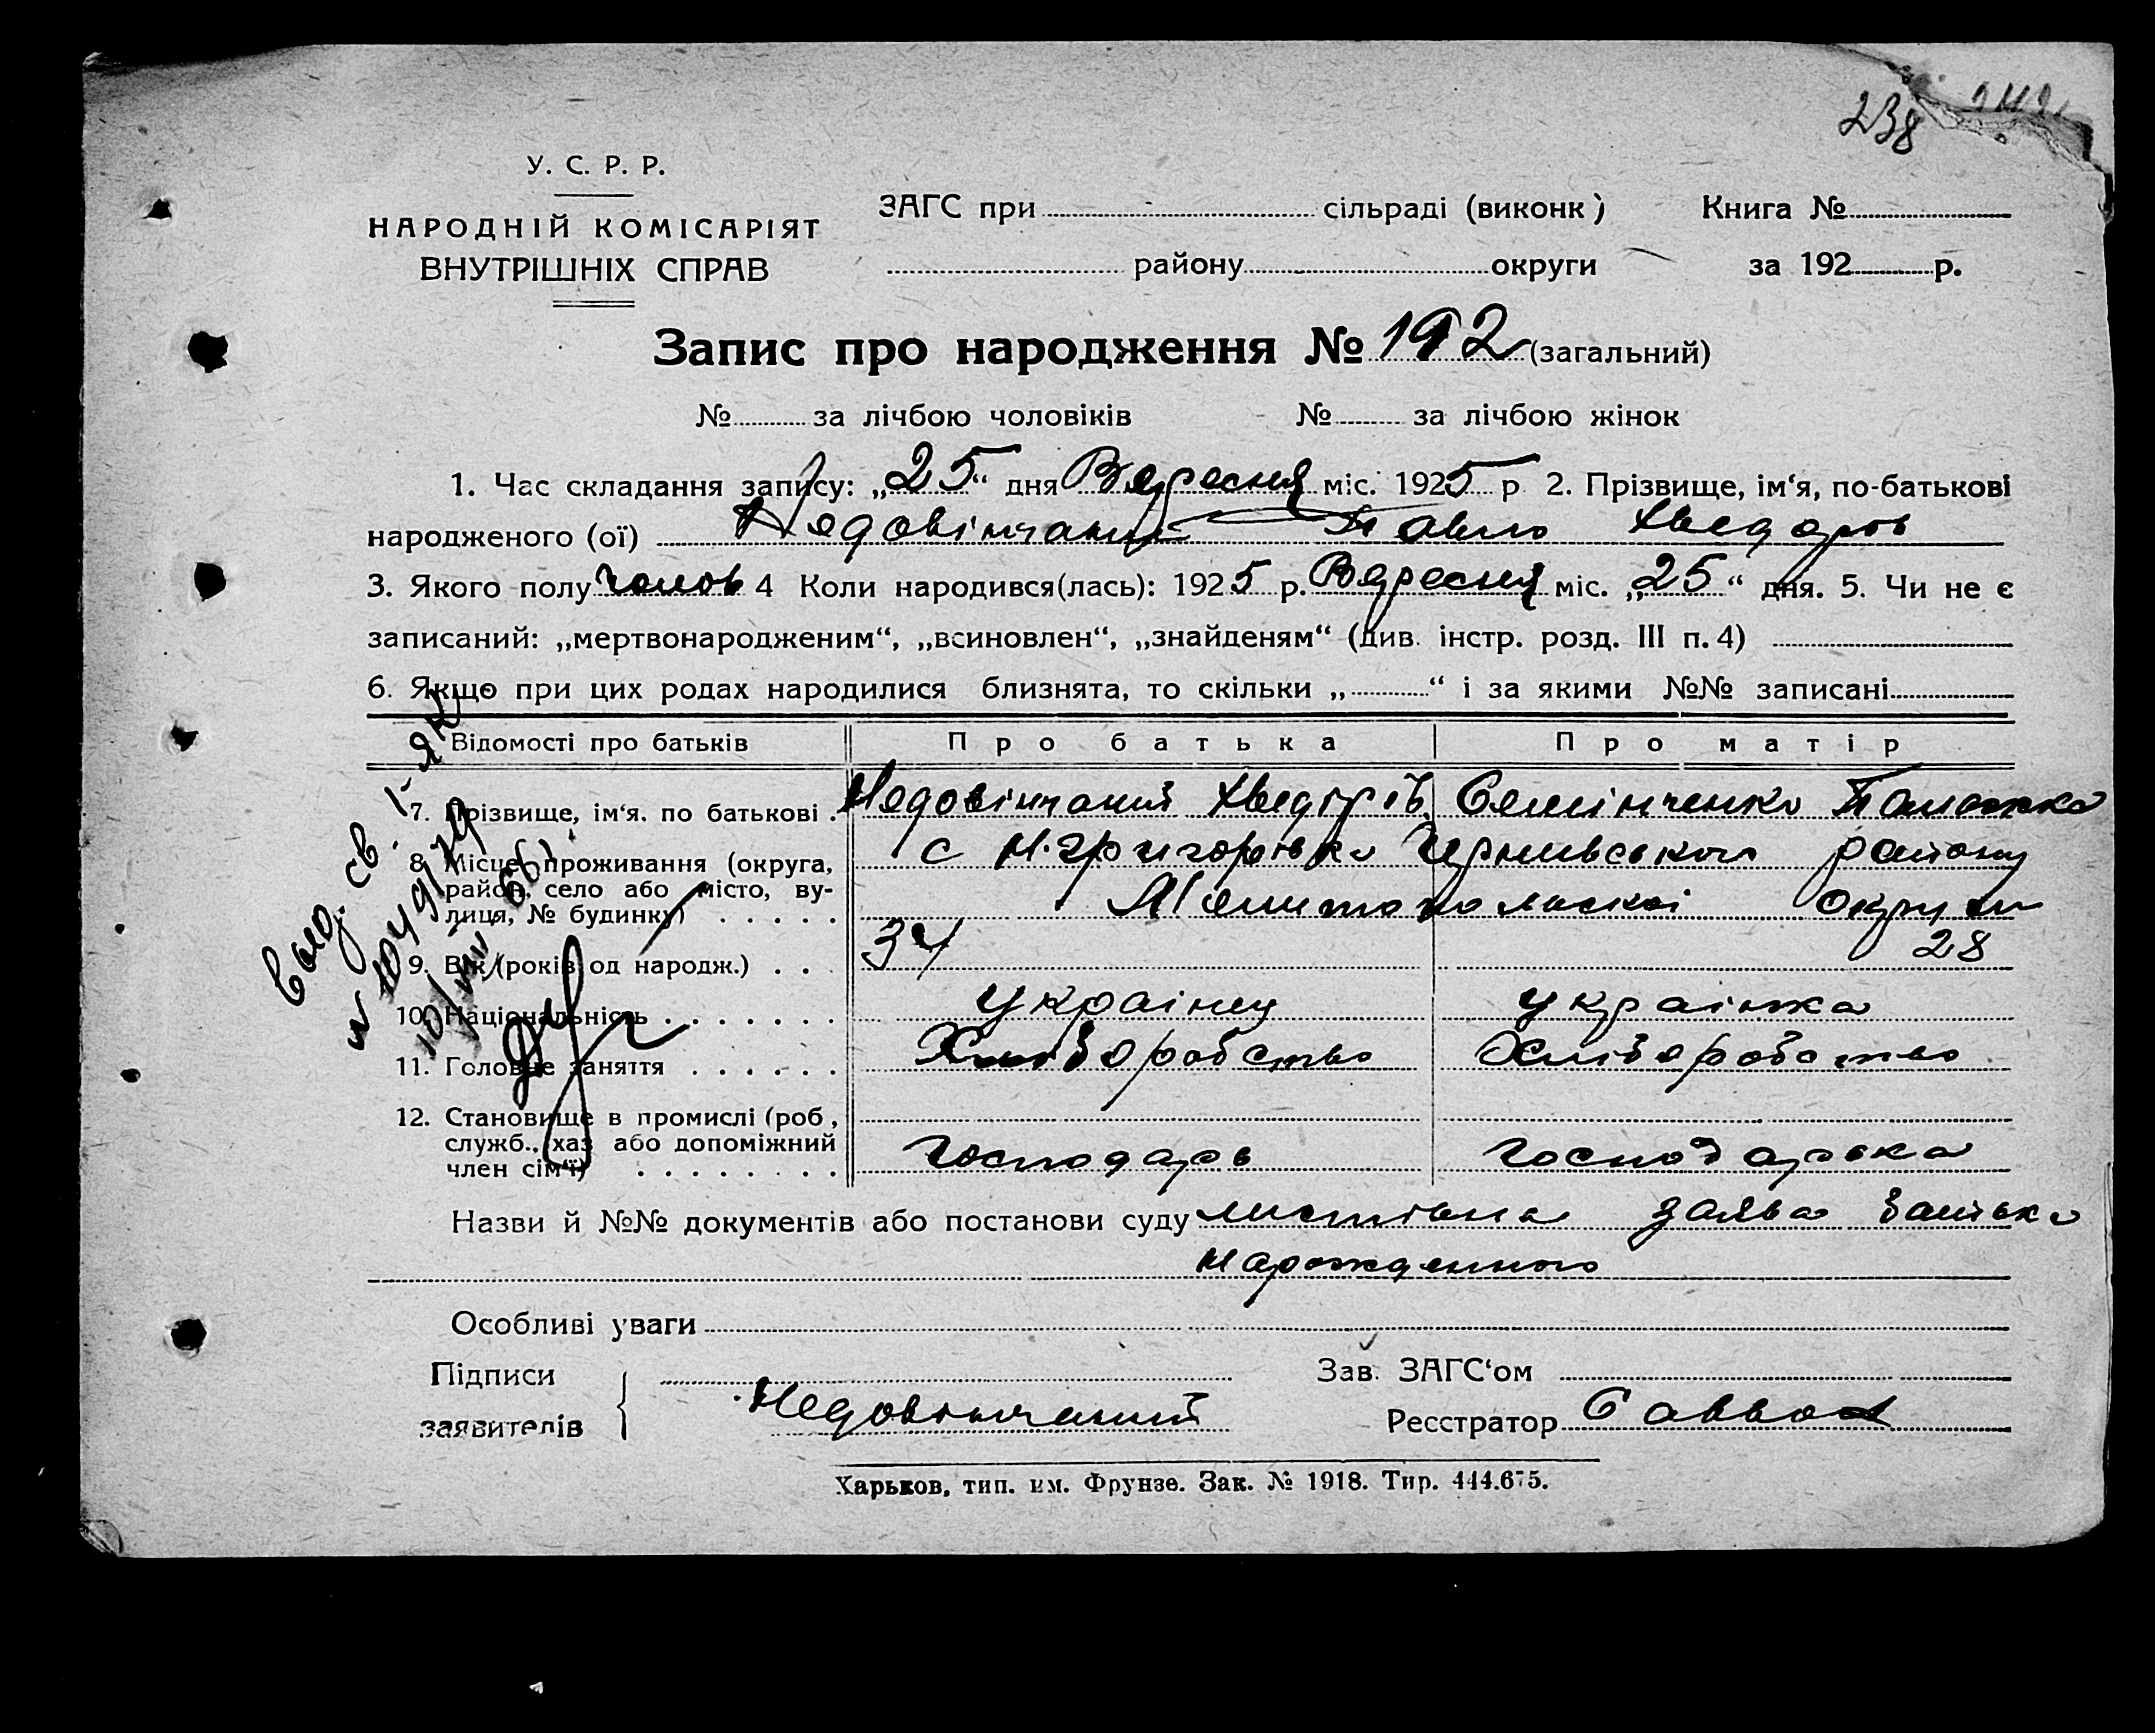 238
У. С. Р. Р.
НАРОДНІЙ КОМІСАРІЯТ
ВНУТРІШНІХ СПРАВ
ЗАГС при сільраді (виконк) Книга №
району округи за 192 р.
Запис про народження № 192 (загальний)
№ за лічбою чоловіків № за лічбою жінок
1. Час складання запису: „25“ дня Вересня міс. 1925 р 2. Прізвище, ім‘я, по-батькові
народженого (ої) Недовінчаний Павло Хведоров
3. Якого полу чолов 4 Коли народився(лась): 1925 р. Вересня міс. „25“ дня. 5. Чи не є
записаний: „мертвонародженим“, „всиновлен“, „знайденям“ (див. інстр. розд. III п. 4)
6. Якщо при цих родах народилися близнята, то скільки „ “ і за якими №№ записані
Відомості про батьків Про батька Про матір
7. Прізвище, ім‘я. по батькові . Недовінчаний Хведір Семінченко
8. Місце проживання (округа, с Н. Григорівка Чернивського району
район, село або місто, ву-
лиця, № будинку) . . . . . Мелитопольскої округи
9. Вік (років од народж.) . . 34 28
10. Національність . . . . . . . украінец украінка
11. Головне заняття . . . . . . Хліборобство Хліборобство
12. Становище в промислі (роб,
служб., хаз або допоміжний
член сім‘ї) . . . . . . . . господарь господарька
Назви й №№ документів або постанови суду заява батька
нарожденного
Особливі уваги
Підписи Зав. ЗАГС‘ом
заявителів Недовінчаний Реєстратор Савва
Харьков, тип. им. Фрунзе. Зак. № 1918. Тир. 444.675.